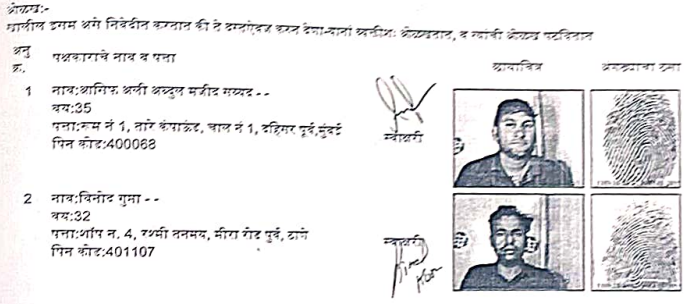 ओळख:-
खालील इसम असे निवेदीत करतात की ते दस्तऐवज करुन देणा-यानां व्यक्तीशः ओळखतात, व त्यांची ओळख पटवितात
अनु क्र.
पक्षकाराचे नाव व पत्ता
छायाचित्र
अंगठ्याचा ठसा
1
नाव:आसिफ अली अब्दुल मजीद सय्यद - -
वय:35
पत्ता:रूम नं 1, तारे कंपाऊंड, चाल नं 1, दहिसर पूर्व,मुंबई
पिन कोड:400068
स्वाक्षरी
2
नाव:विनोद गुप्ता - -
वय:32
पत्ता:शॉप न. 4, रश्मी तनमय, मीरा रोड पुर्व, ठाणे
पिन कोड:401107
स्वाक्षरी